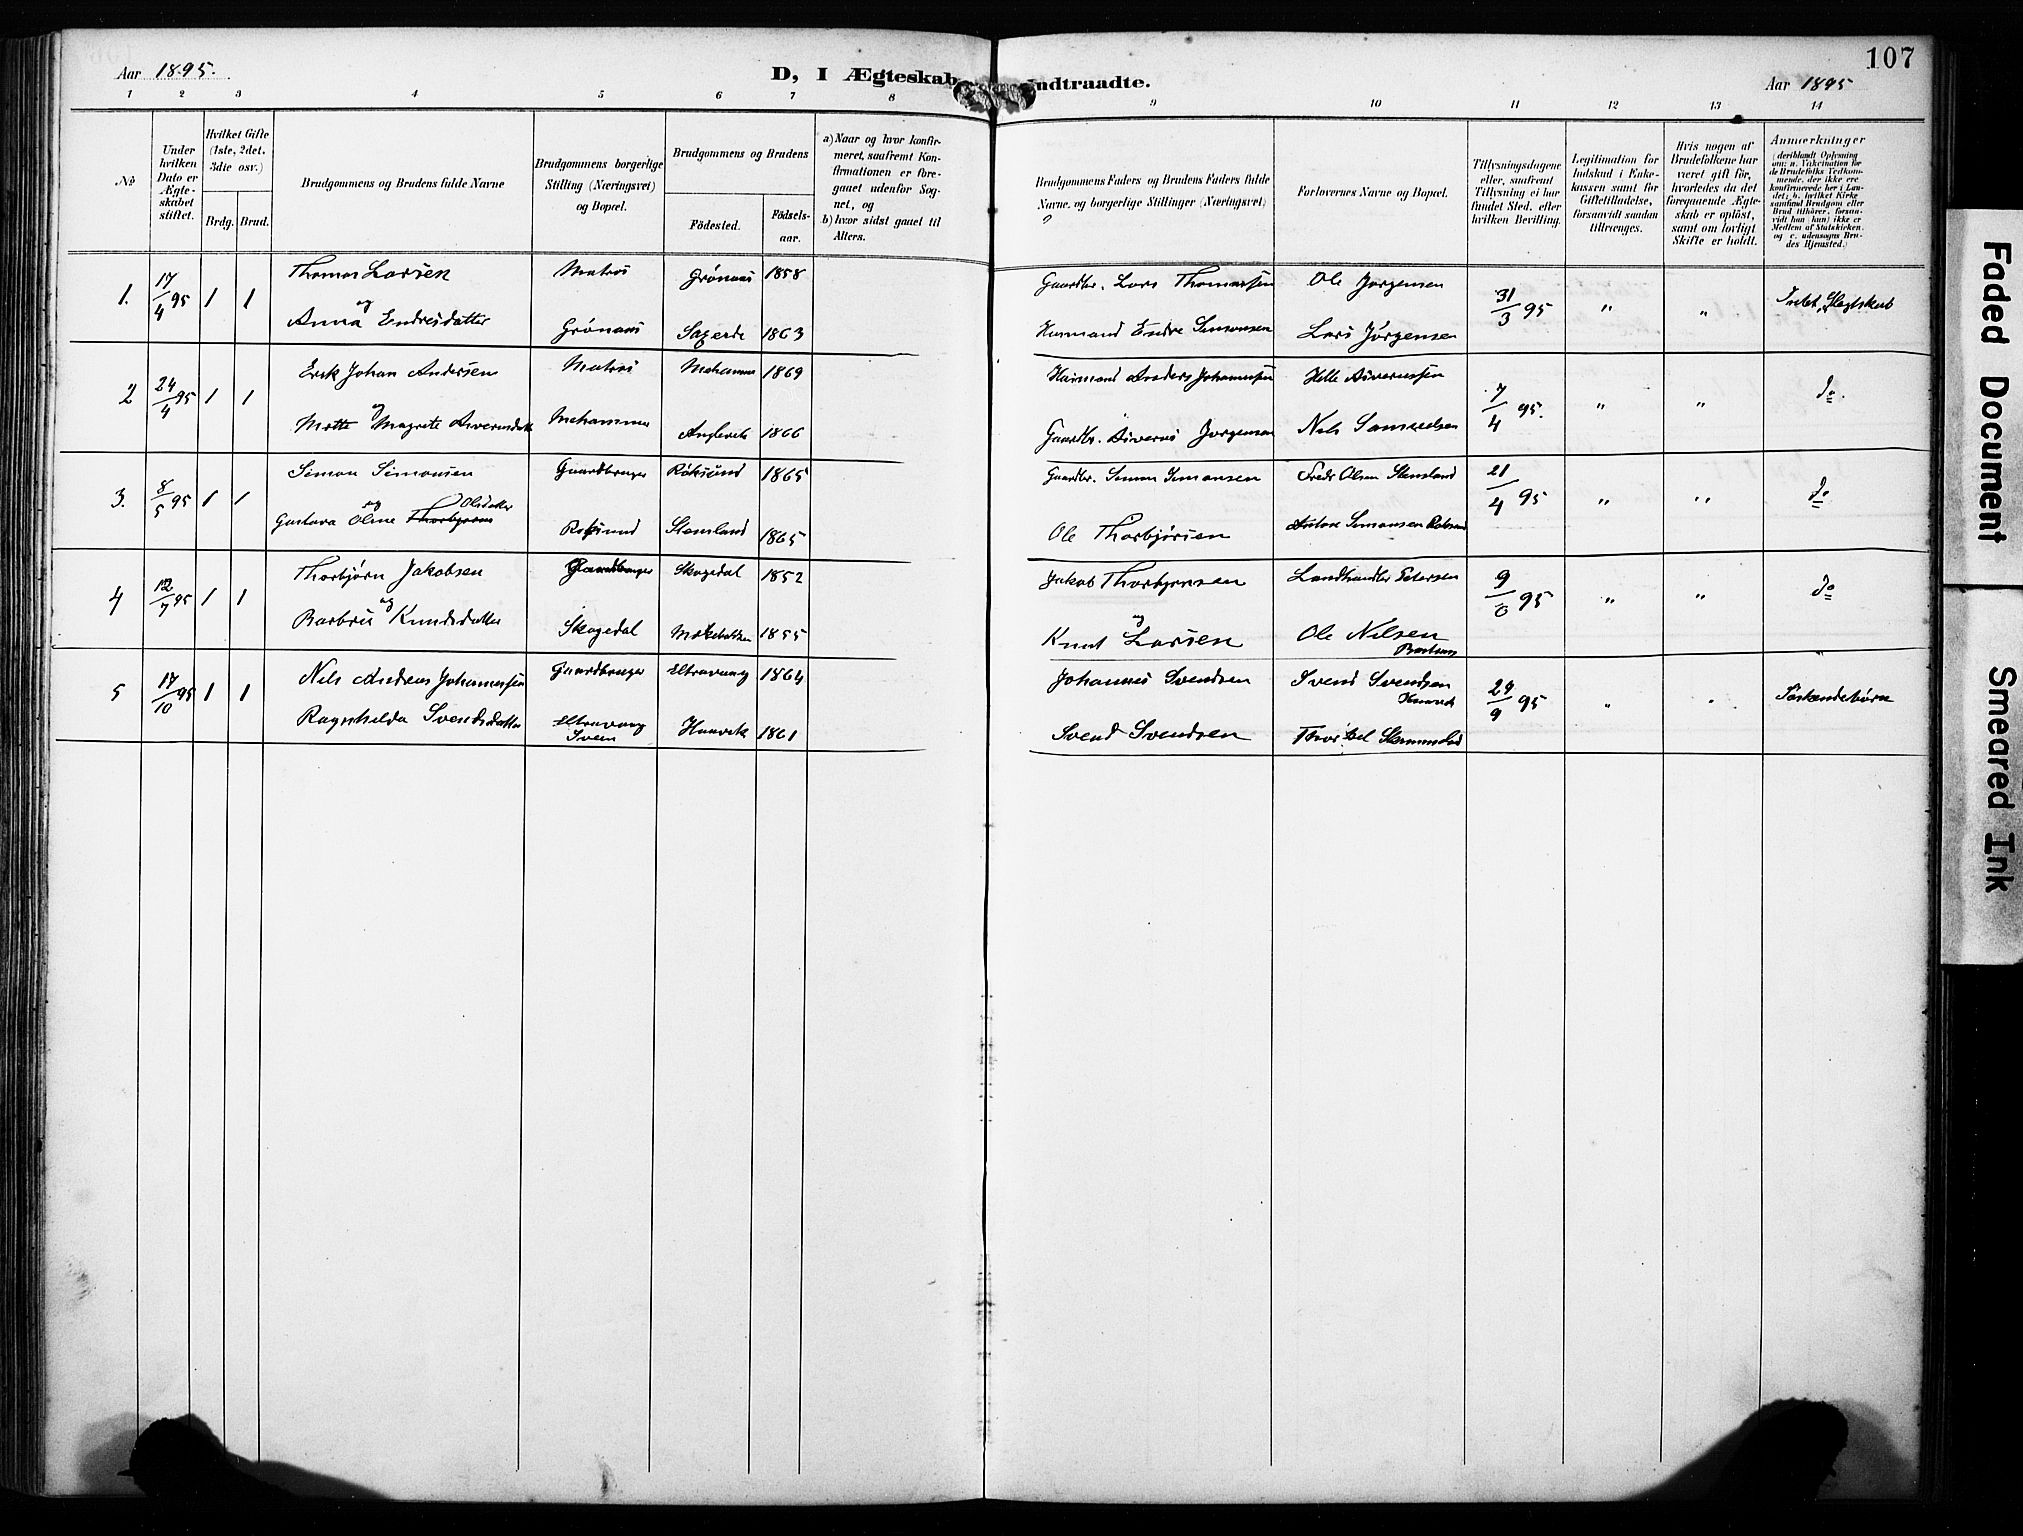 107
Aar 1895.
D, I Ægteskab
ndtraadte.
Aar 1895
1 2 3 4 5 6 7 8 9 10 11 12 13 14
No
Under hvilken Dato er Ægteskabet stiftet.
Hvilket Gifte (1ste, 2det, 3die osv.)
Brdg. Brud.
Brudgommens og Brudens fulde Navne
Brudgommens borgerlige Stilling (Næringsvei) og Bopæl.
Brudgommens og Brudens
Födested.
Födsels-aar.
a) Naar og hvor konfir-
meret, saafremt Kon-
firmationen er fore-
gaaet udenfor Sog-
net, og
b) hvor sidst gaaet til
Alters.
Brudgommens Faders og Brudens Faders fulde
Navne, og borgerlige Stillinger (Næringsvei)
Forlovernes Navne og Bopæl.
Tillysningsdagene
eller, saafremt
Tillysning ei har
fundet Sted, efter
hvilken Bevilling.
Legitimation for
Indskud i Enke-
kassen samt for
Giftetilladelse,
forsaavidt saadan
tiltrænges.
Hvis nogen af
Brudefolkene har
været gift før,
hvorledes da det
foregaaende Ægte-
skab er oplöst,
samt om lovligt
Skifte er holdt.
Anmærkninger
(deriblandt Oplysning
om: a. Vakcination for
de Brudefolks Vedkom-
mende, der ikke ere
konfirmerede her i Lan-
det; b. hvilket Kirke
samfund Brudgom eller
Brud tilhörer, forsaa-
vidt han (hun) ikke er
Medlem af Statskirken,
og c. udensogns Bru-
des Hjemsted.)
1. 17/4 95 1 1 Thomas Larsen Matros Grönaas 1858 Gaardbr. Lars Thomassen Ole Jørgensen 31/3 95 " " Intet Slegtskab
og
Anna Endresdatter Grönaas 1863 Husmand Endre Simonsen Lars Jørgensen
2 24/4 95 1 1 Erik Johan Andersen Matros Mehammer 1869 Husmand Anders Johannessen Helle 7/4 95. " " do
og
Mette Magrete Mehammer 1866 Gaardbr. Jørgensen Nils Samuelsen
3. 8/5 95 1 1 Simon Simonsen Gaardbruger Röksund 1865 Gaardbr. Simon Simonsen Fredr Olsen Stensland 21/4 95 " " do
og Olsdatter
Gustava Oline Röksund Stensland 1865 Ole Thorbjörsen Simonsen
4 12/7 95 1 1 Thorbjörn Jakobsen Gaardbruger Skogedal 1852 Jakob Thorbjørnsen Landhandler Petersen 9/6 95 " " do
og
Knudsdatter Skogedal 1855 Knut Larsen Ole Nilsen
5 17/10 95 1 1 Nils Andreas Johannessen Gaardbruger Eltravaag 1864 Johannes Svendsen Svend Svendsen 29/9 95 " " Söskendebörn
Ragnhilda Svendsdatter Eltravaag 1861 Svend Svendsen
Sveen
Faded Document
Smeared Ink